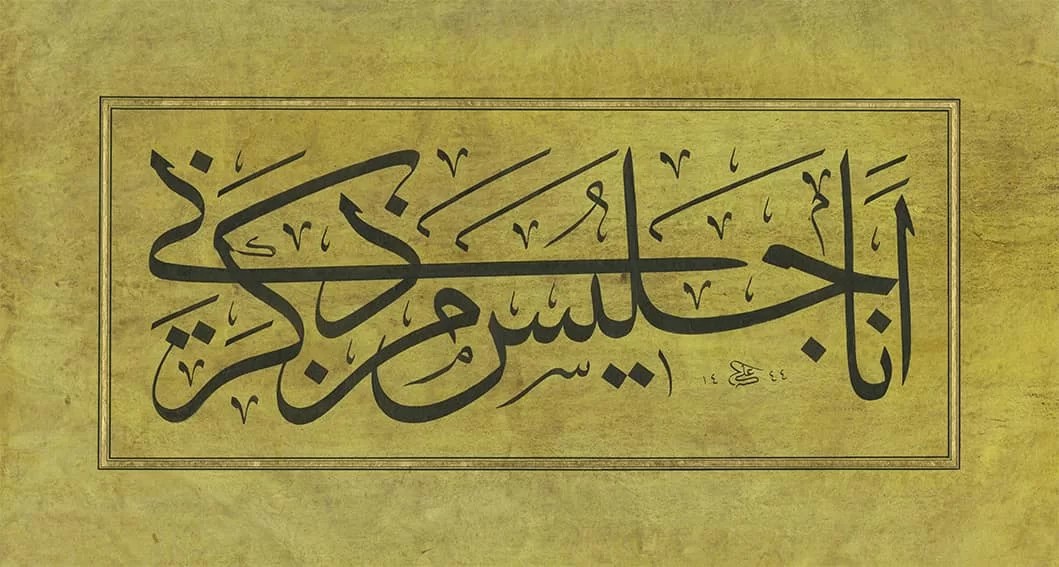 أَنَا جَلِيسُ مَنْ ذَكَرَنِي
١٤٤٤